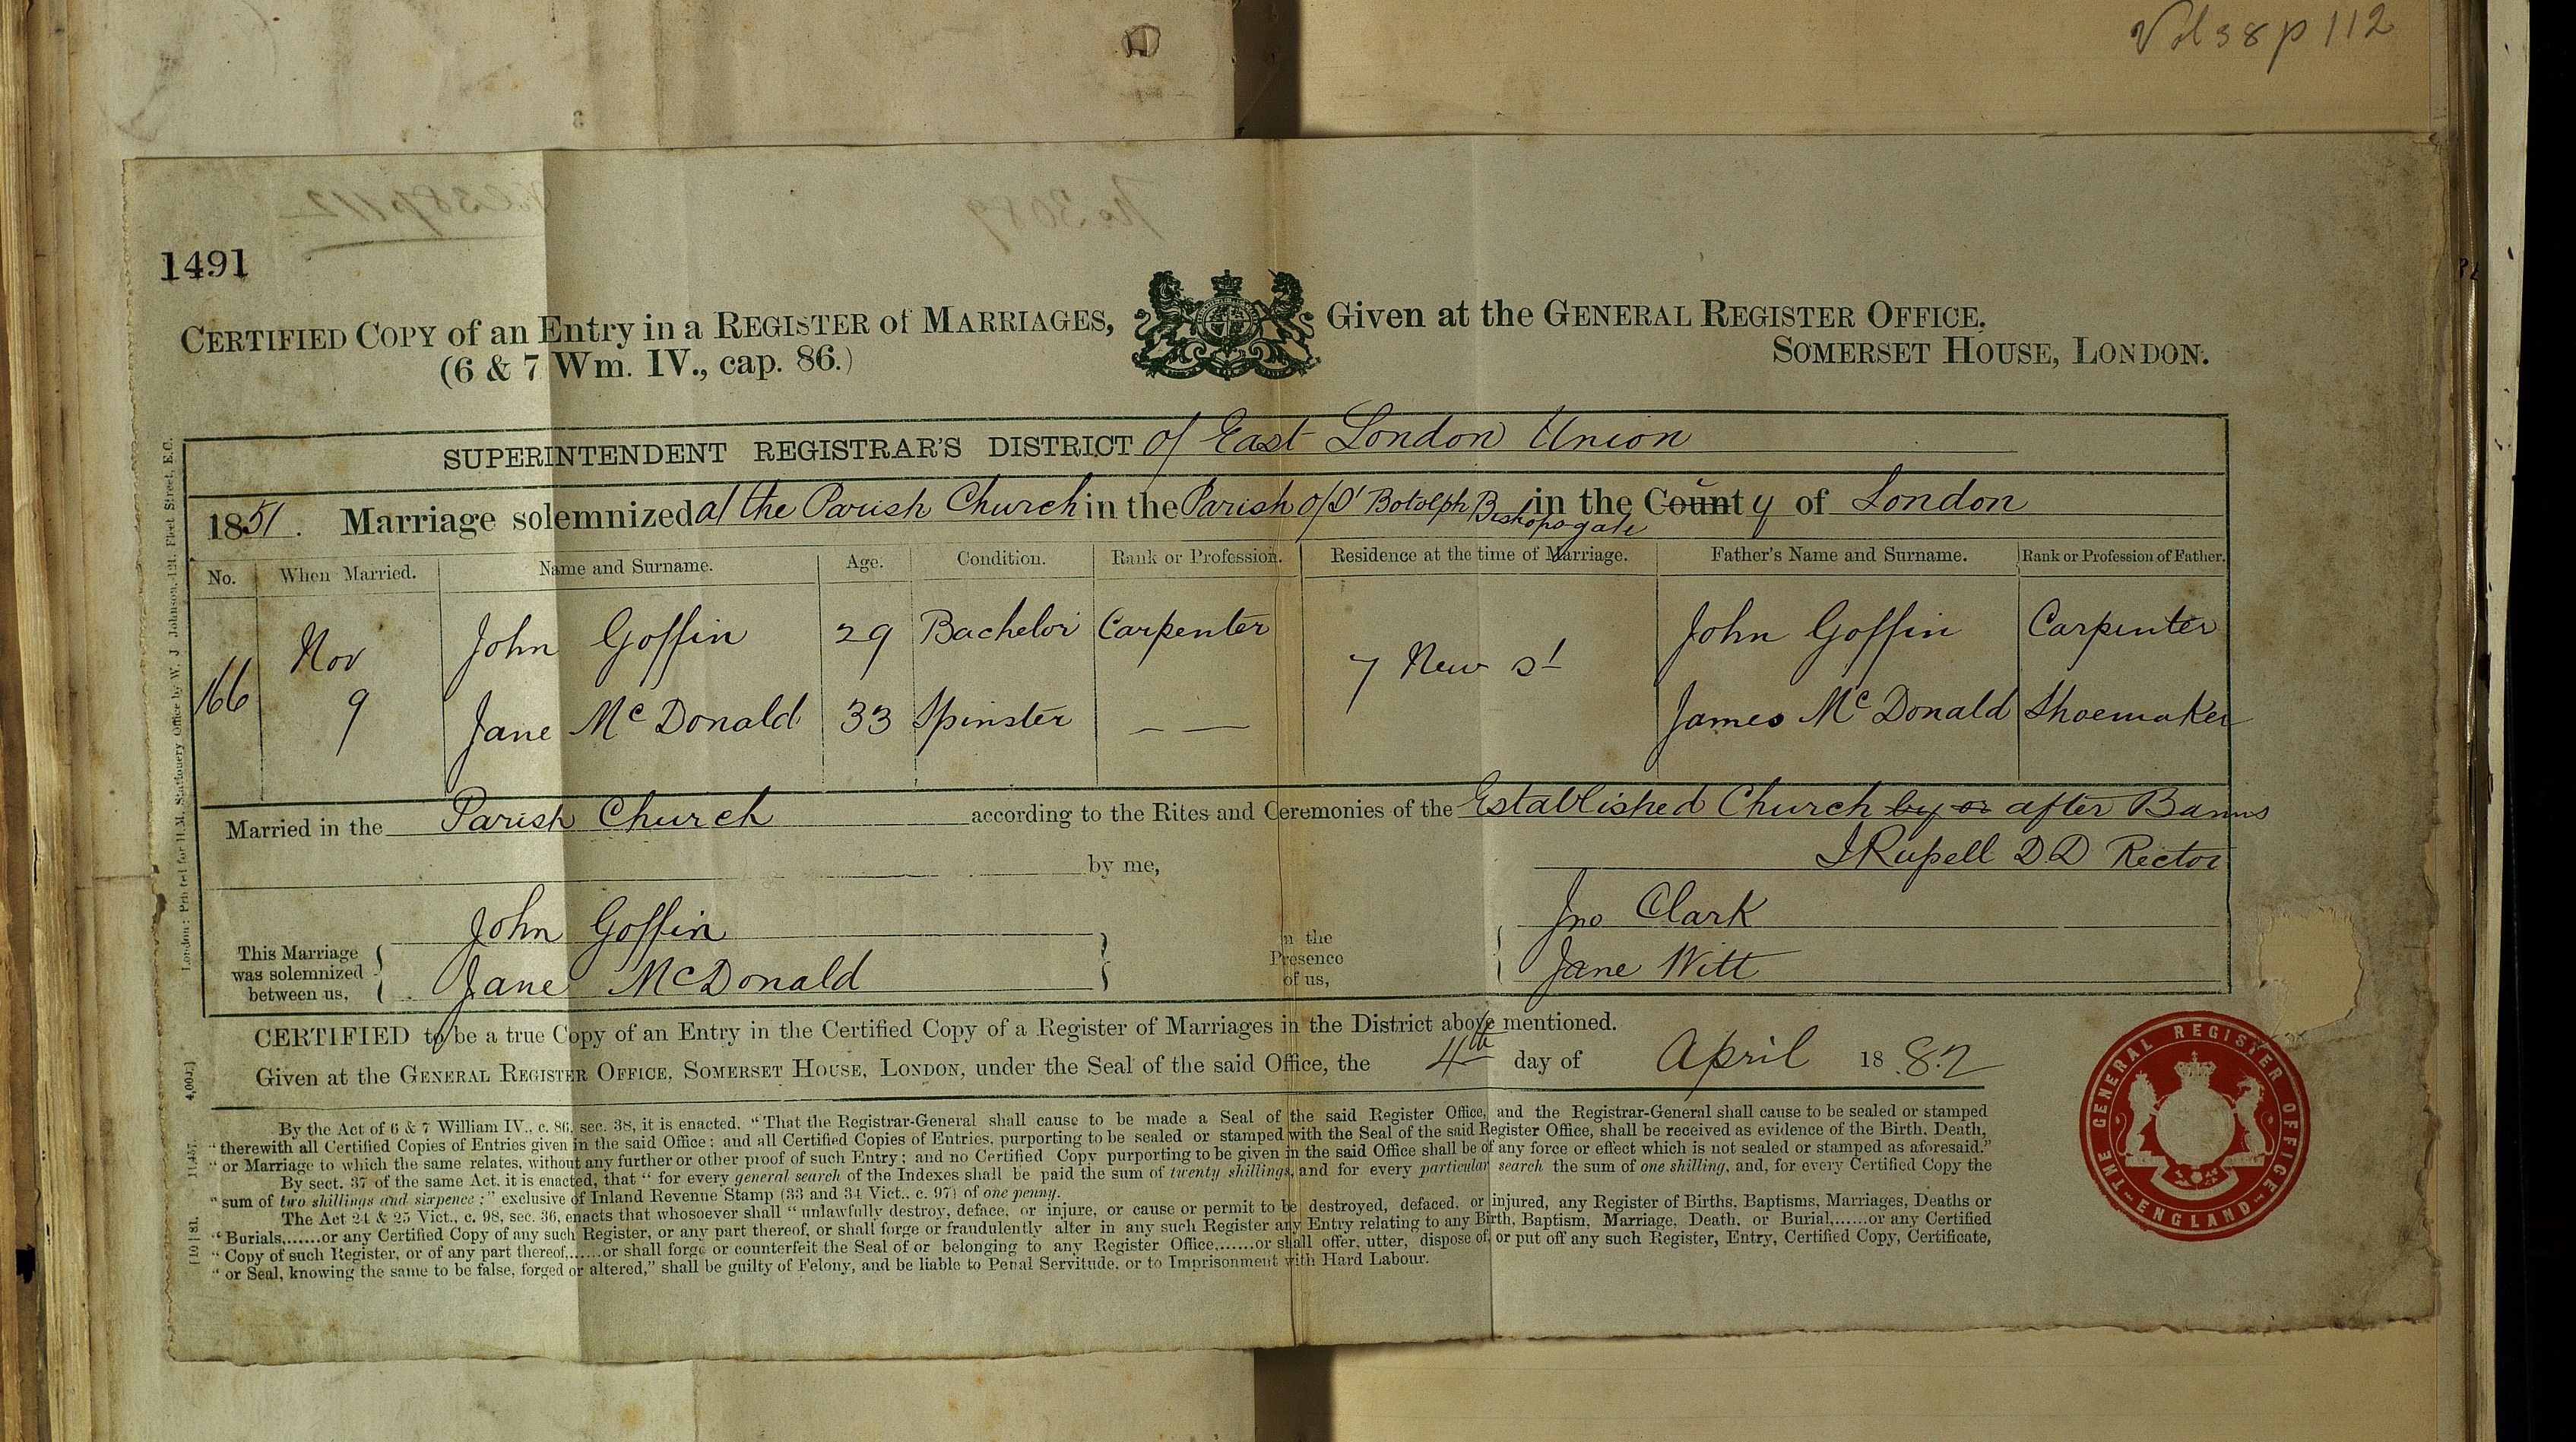 Vol 38 p 112
Vol 38 p 112
No 3089
1491
CERTIFIED COPY of an Entry in a REGISTER of MARRIAGES, Given at the GENERAL REGISTER OFFICE,
(6 & 7 Wm. IV., cap. 86.) SOMERSET HOUSE, LONDON.
SUPERINTENDENT REGISTRAR'S DISTRICT of East London Union
1851. Marriage solemnized at the Parish Church in the Parish of St Botolph Bishopsgate in the County of London
No. When Married. Name and Surname. Age. Condition. Rank or Profession. Residence at the time of Marriage. Father's Name and Surname. Rank or Profession of Father.
166 Nov 9 John Goffin 29 Bachelor Carpenter 7 New St John Goffin Carpenter
Jane McDonald 33 Spinster — — James McDonald Shoemaker
Married in the Parish Church according to the Rites and Ceremonies of the Established Church by or after Banns
by me, J Russell D.D Rector
This Marriage was solemnized between us, John Goffin Jane McDonald in the Presence of us, Jno Clark Jane Witt
CERTIFIED to be a true Copy of an Entry in the Certified Copy of a Register of Marriages in the District above mentioned.
Given at the GENERAL REGISTER OFFICE, SOMERSET HOUSE, LONDON, under the Seal of the said Office, the 4th day of April 1882
By the Act of 6 & 7 William IV., c. 86, sec. 38, it is enacted, "That the Registrar-General shall cause to be made a Seal of the said Register Office, and the Registrar-General shall cause to be sealed or stamped
"therewith all Certified Copies of Entries given in the said Office; and all Certified Copies of Entries, purporting to be sealed or stamped with the Seal of the said Register Office, shall be received as evidence of the Birth, Death,
"or Marriage to which the same relates, without any further or other proof of such Entry; and no Certified Copy purporting to be given in the said Office shall be of any force or effect which is not sealed or stamped as aforesaid."
By sect. 37 of the same Act, it is enacted, that "for every general search of the Indexes shall be paid the sum of twenty shillings, and for every particular search the sum of one shilling, and, for every Certified Copy the
"sum of two shillings and sixpence;" exclusive of Inland Revenue Stamp (33 and 34 Vict., c. 97) of one penny.
The Act 24 & 25 Vict., c. 98, sec. 36, enacts that whosoever shall "unlawfully destroy, deface, or injure, or cause or permit to be destroyed, defaced, or injured, any Register of Births, Baptisms, Marriages, Deaths or
"Burials,......or any Certified Copy of any such Register, or any part thereof, or shall forge or fraudulently alter in any such Register any Entry relating to any Birth, Baptism, Marriage, Death, or Burial,......or any Certified
"Copy of such Register, or of any part thereof,......or shall forge or counterfeit the Seal of or belonging to any Register Office,......or shall offer, utter, dispose of, or put off any such Register, Entry, Certified Copy, Certificate,
"or Seal, knowing the same to be false, forged or altered," shall be guilty of Felony, and be liable to Penal Servitude, or to Imprisonment with Hard Labour.
THE GENERAL REGISTER OFFICE
ENGLAND
London: Printed for H.M. Stationery Office by W. J. Johnson, 121, Fleet Street, E.C.